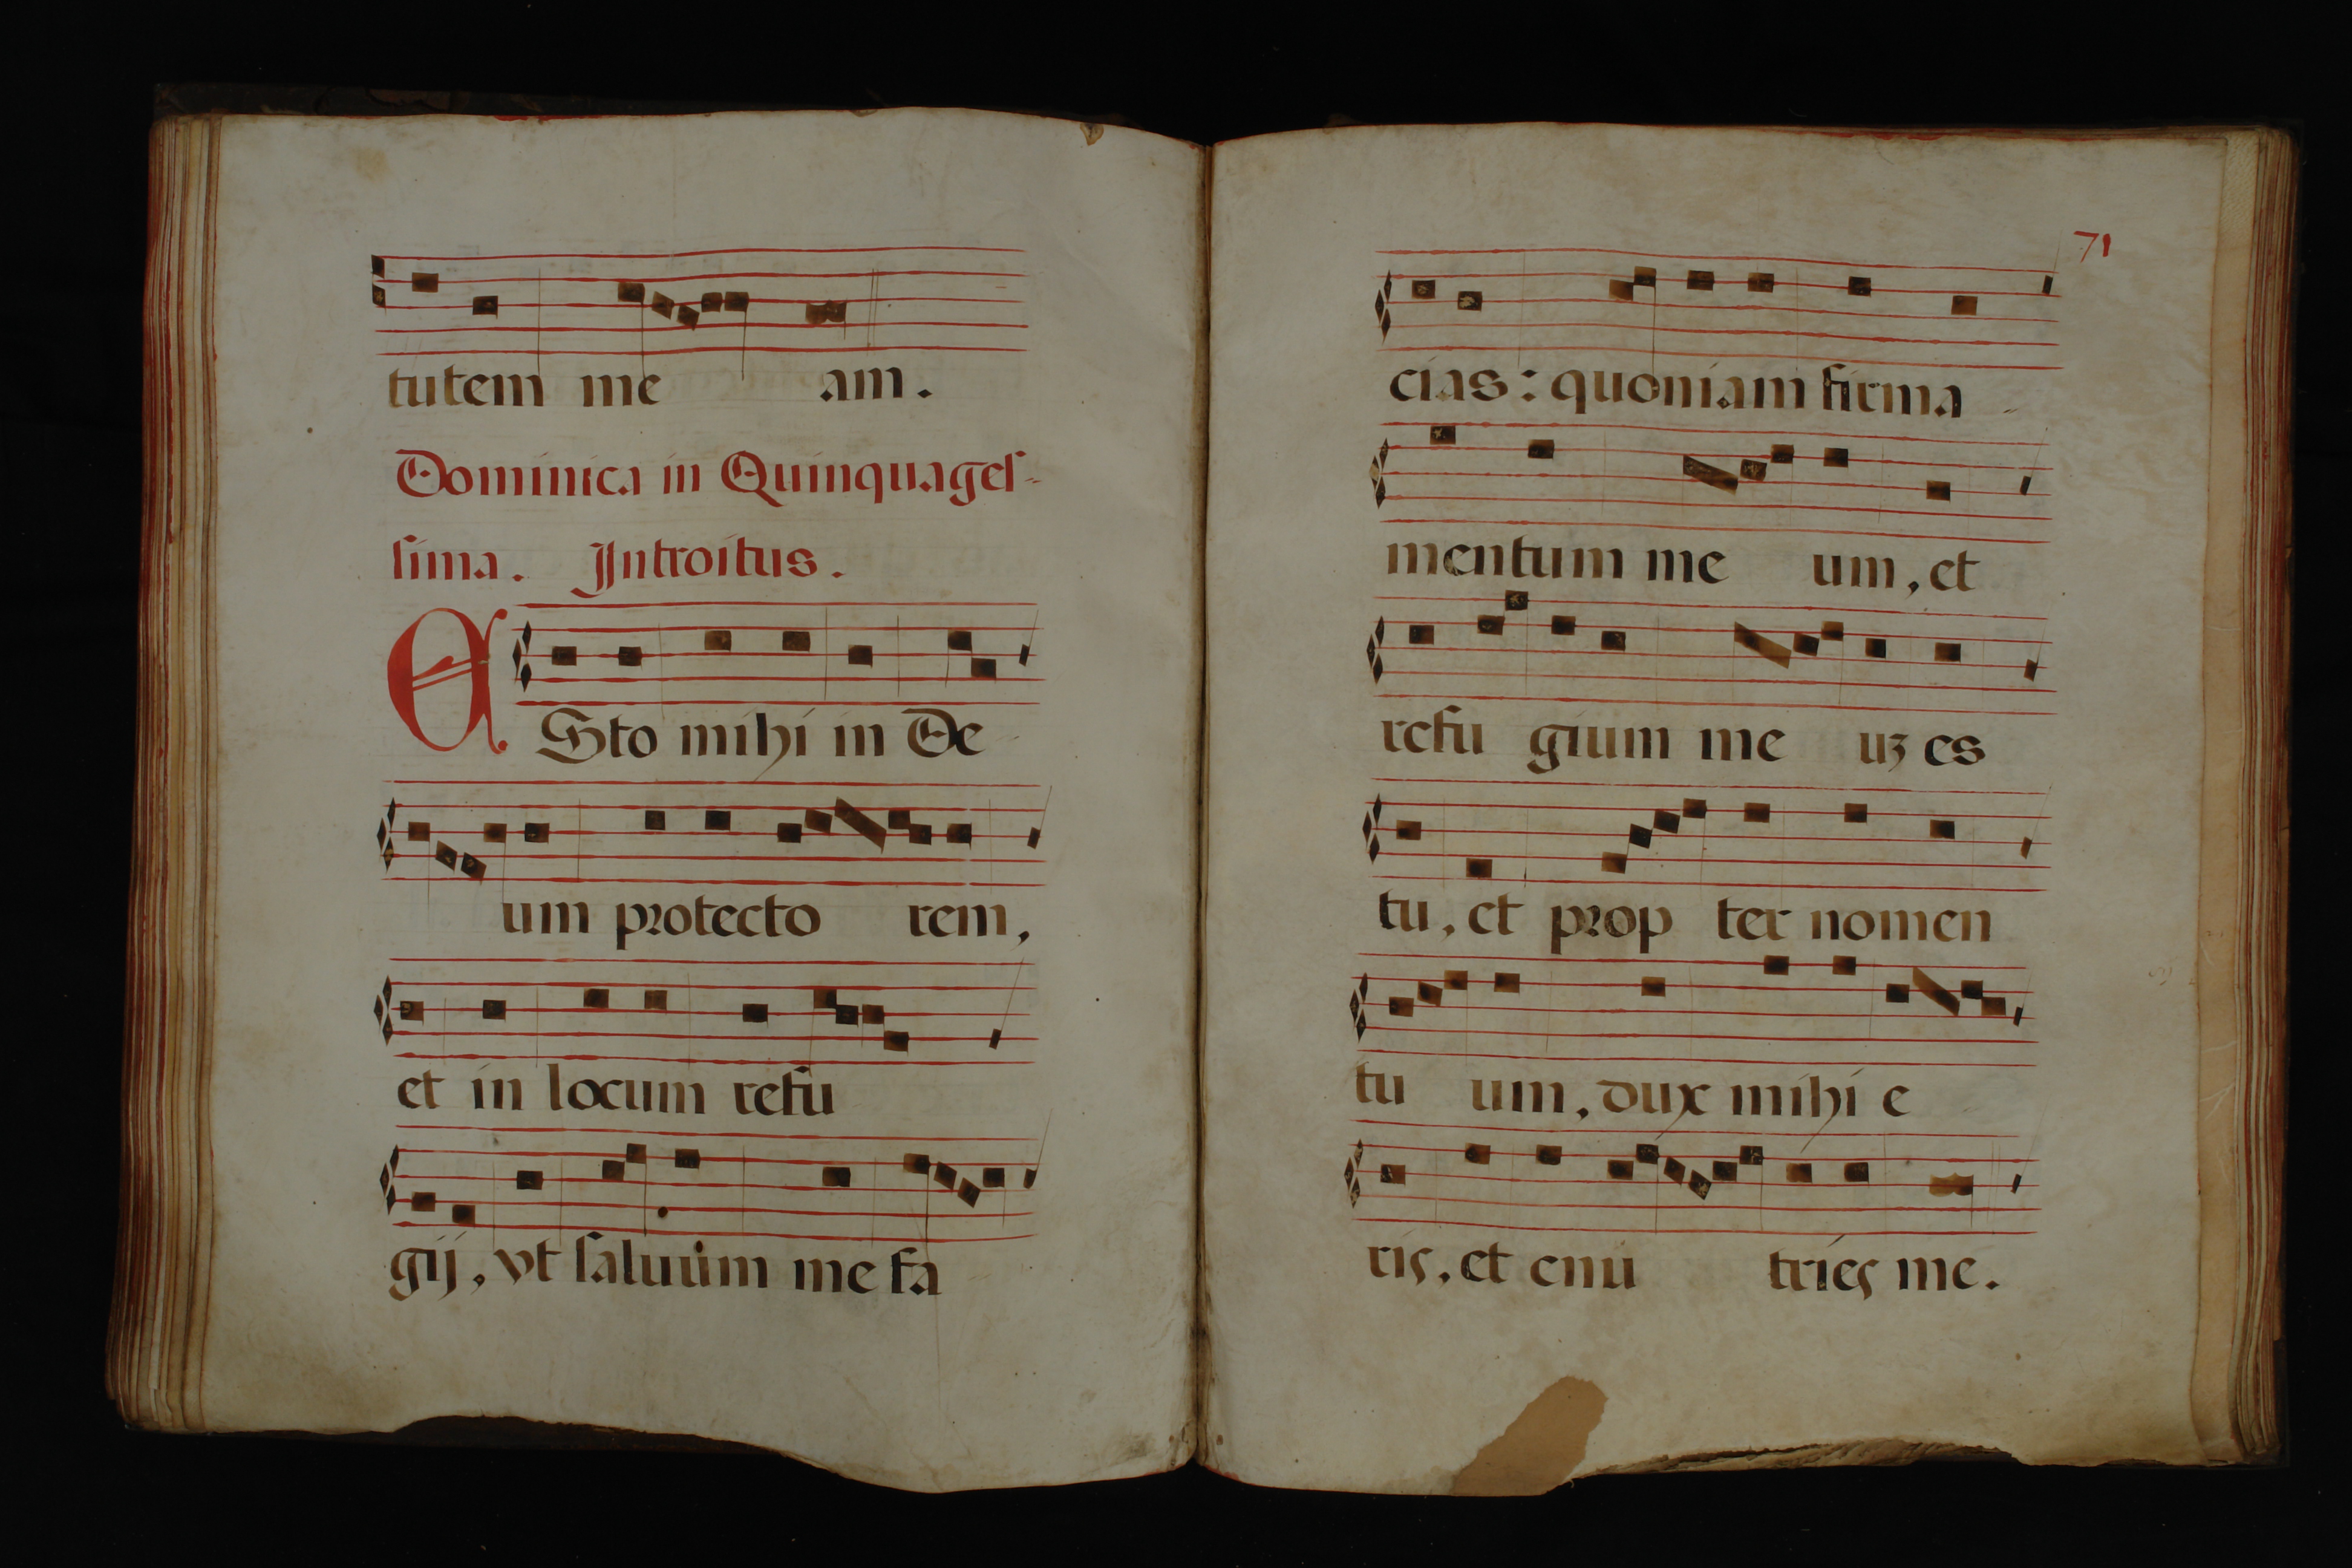 tutem me am.
Dominica in Quinquages-
sima. Introitus.
ESto mihi in De
um protecto rem,
et in locum refu
gij, vt saluum me fa
71
cias: quoniam firma
mentum me um, et
refu gium me uʒ es
tu, et prop ter nomen
tu um, dux mihi e
ris, et enu tries me.